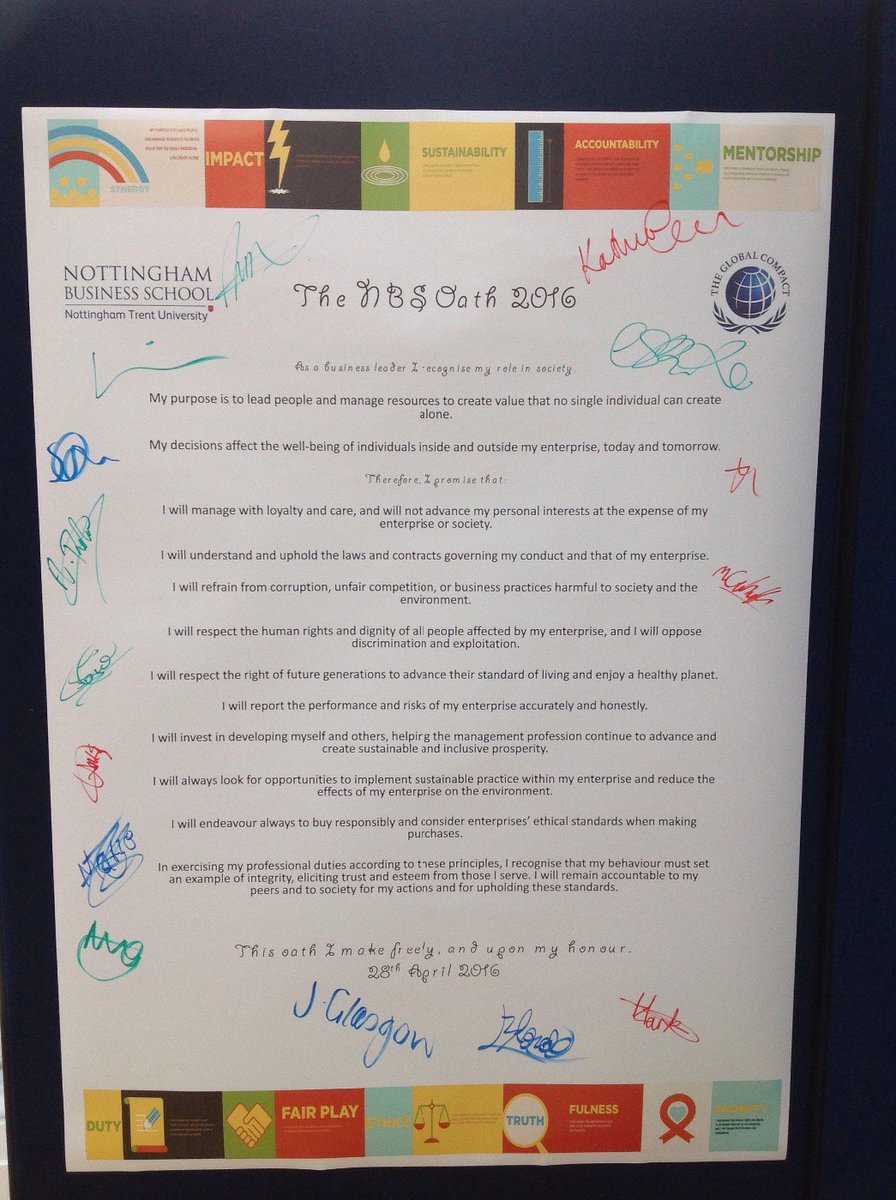 MY PURPOSE IS TO LEAD PEOPLE
AND MANAGE RESOURCES TO CREATE
VALUE THAT NO SINGLE INDIVIDUAL
CAN CREATE ALONE
SYNERGY
IMPACT
SUSTAINABILITY
ACCOUNTABILITY
MENTORSHIP
NOTTINGHAM
BUSINESS SCHOOL
Nottingham Trent University
The NBS Oath 2016
THE GLOBAL COMPACT
As a business leader I recognise my role in society.
My purpose is to lead people and manage resources to create value that no single individual can create
alone.
My decisions affect the well-being of individuals inside and outside my enterprise, today and tomorrow.
Therefore, I promise that:
I will manage with loyalty and care, and will not advance my personal interests at the expense of my
enterprise or society.
I will understand and uphold the laws and contracts governing my conduct and that of my enterprise.
I will refrain from corruption, unfair competition, or business practices harmful to society and the
environment.
I will respect the human rights and dignity of all people affected by my enterprise, and I will oppose
discrimination and exploitation.
I will respect the right of future generations to advance their standard of living and enjoy a healthy planet.
I will report the performance and risks of my enterprise accurately and honestly.
I will invest in developing myself and others, helping the management profession continue to advance and
create sustainable and inclusive prosperity.
I will always look for opportunities to implement sustainable practice within my enterprise and reduce the
effects of my enterprise on the environment.
I will endeavour always to buy responsibly and consider enterprises' ethical standards when making
purchases.
In exercising my professional duties according to these principles, I recognise that my behaviour must set
an example of integrity, eliciting trust and esteem from those I serve. I will remain accountable to my
peers and to society for my actions and for upholding these standards.
This oath I make freely, and upon my honour.
28th April 2016
J. Glasgow
DUTY
FAIR PLAY
ETHICS
TRUTH
FULNESS